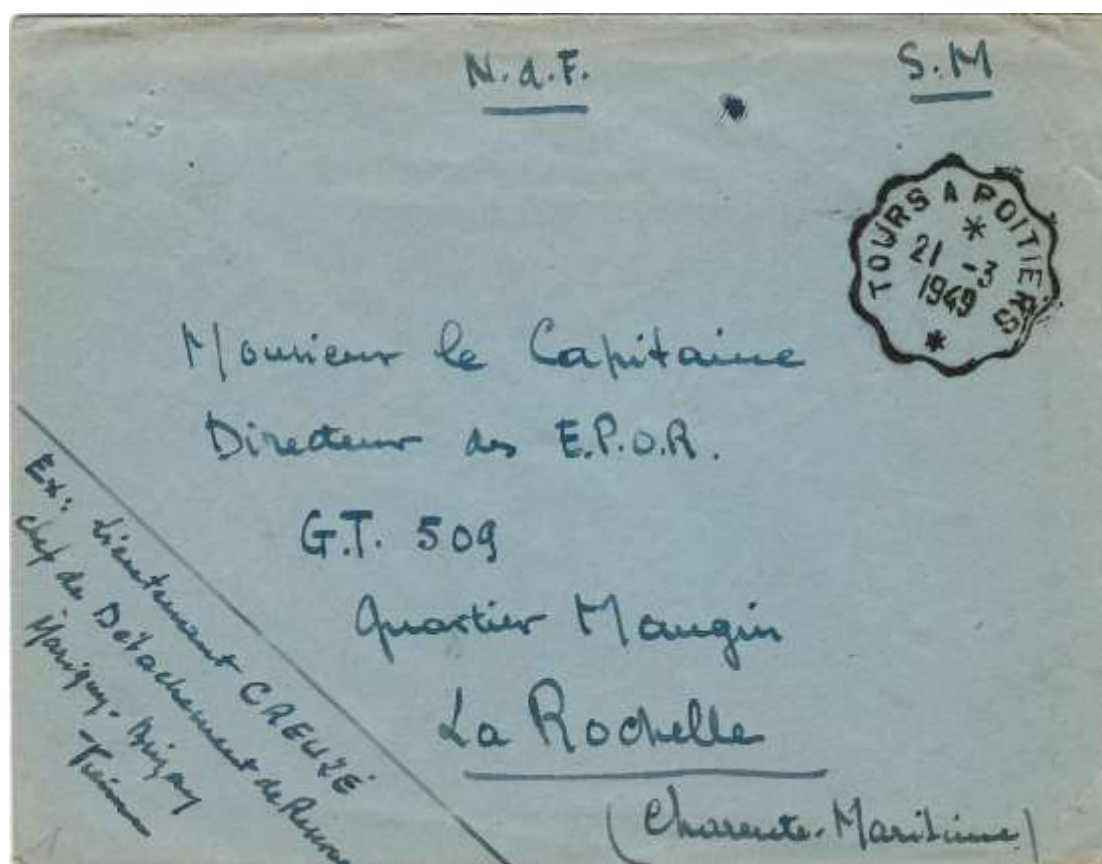 N.d.F.
S.M
TOURS A POITIERS
21 -3
1949
Monsieur le Capitaine
Directeur des E.P.O.R.
G.T. 509
Quartier Mangin
La Rochelle
(Charente-Maritime)
Ex: Lieutenant CREUZÉ
chef de Détachement de
Marigny-Brizay
-Vienne